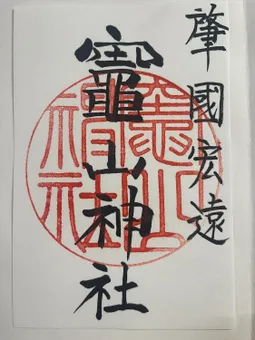 肇國宏遠
竈山神社
竈山
神社